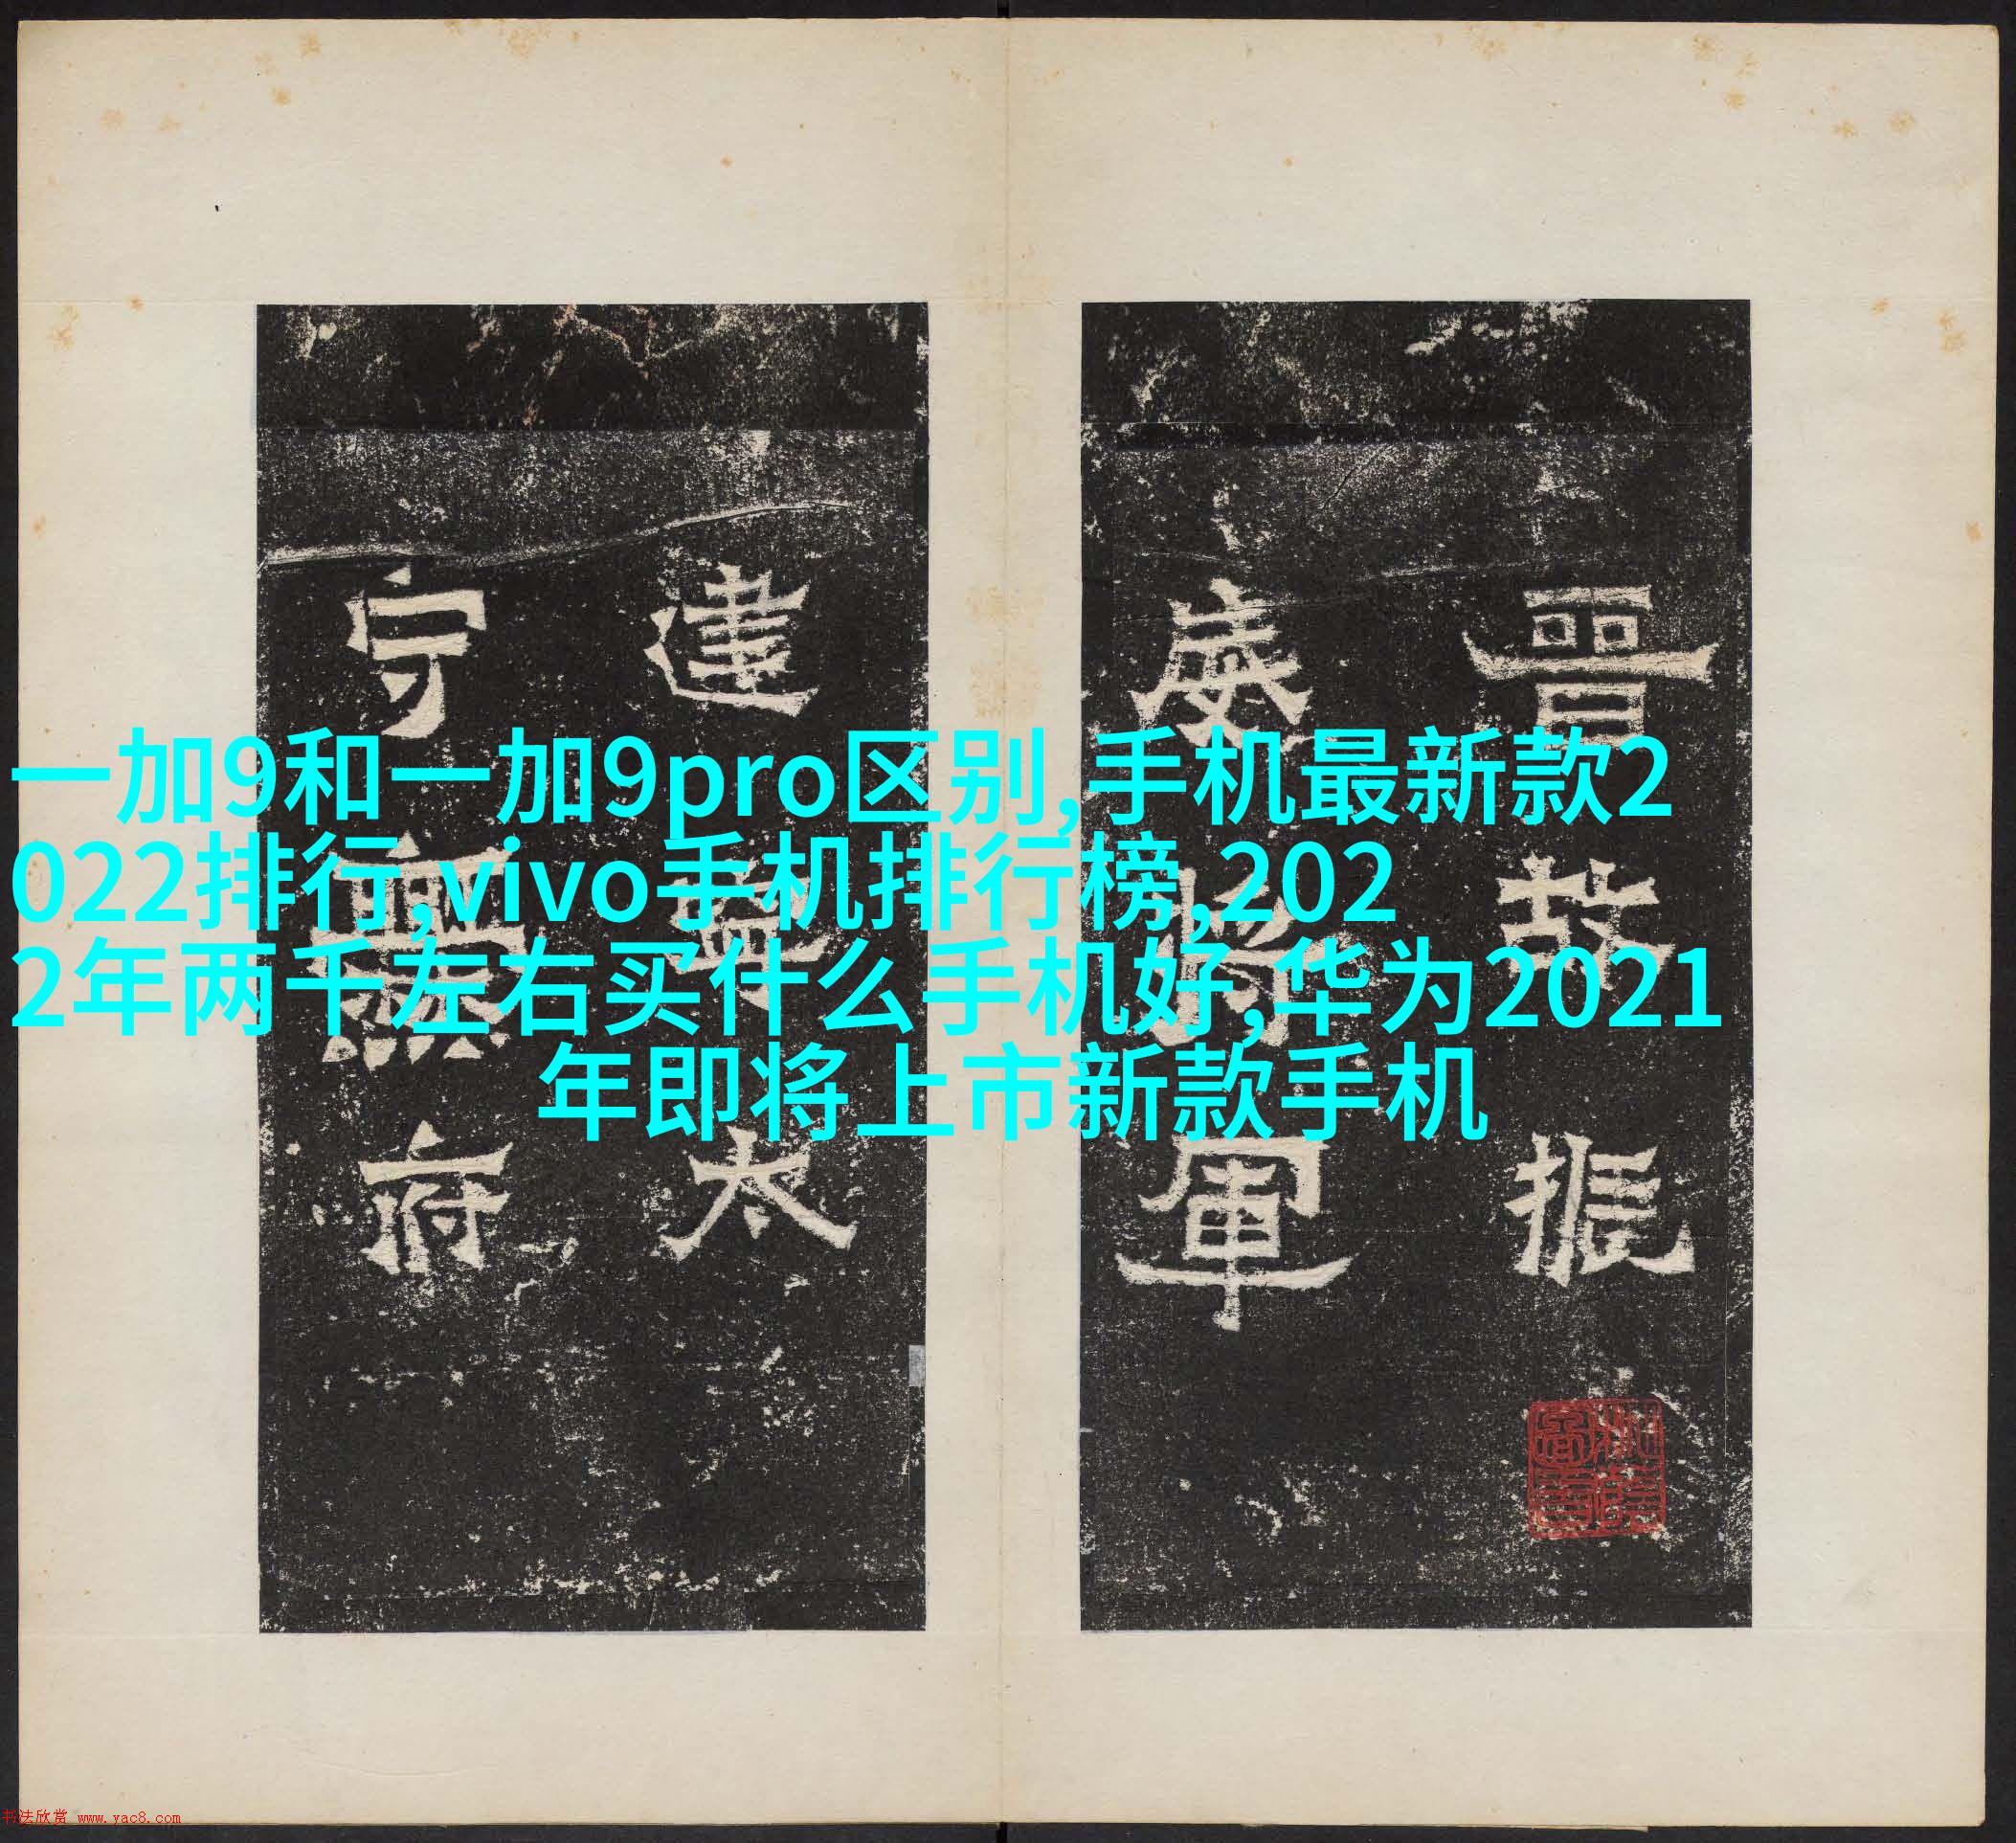 一加9和一加9pro区别,手机最新款2
022排行,vivo手机排行榜,202
2年两千左右买什么手机好,华为2021
年即将上市新款手机
晉故振
威將軍
建寧太
守府
书法欣赏 www.yac8.com